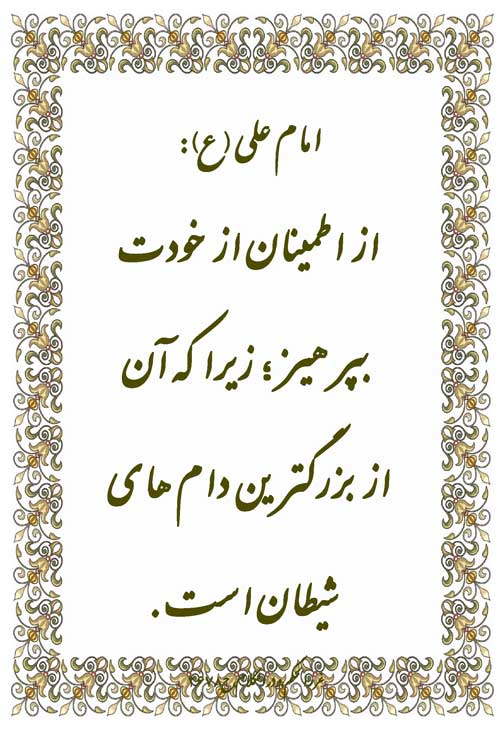 امام علی (ع):
از اطمینان از خودت
بپرهیز؛ زیرا که آن
از بزرگترین دام های
شیطان است.